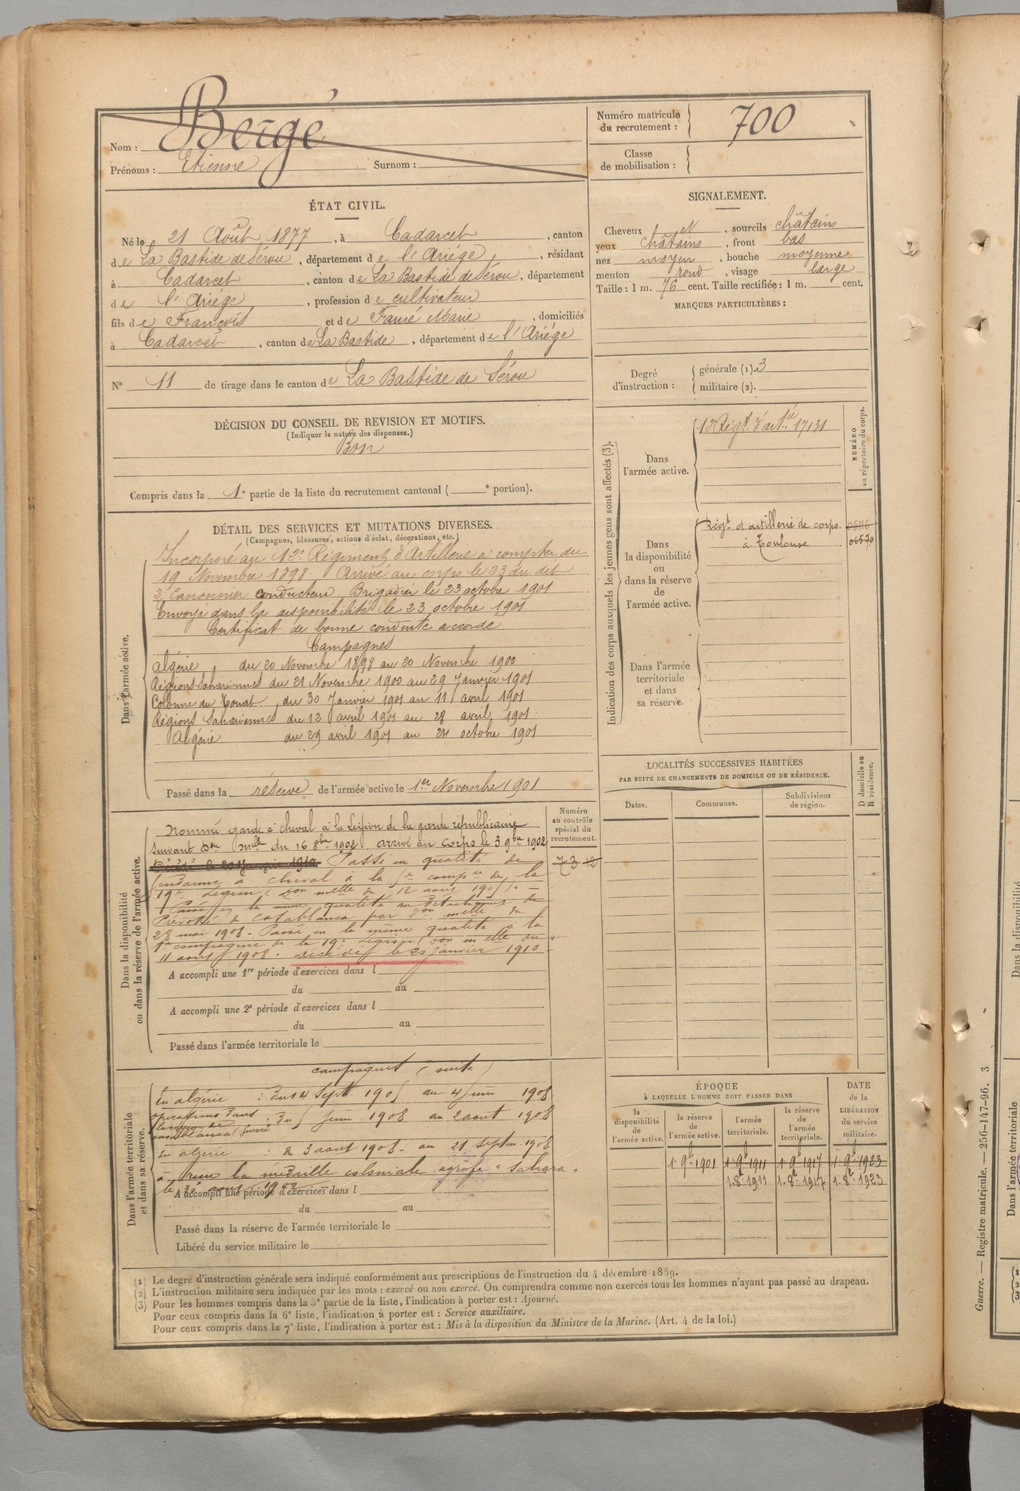 Nom : Bergé
Prénoms : Etienne Surnom :
Numéro matricule du recrutement : 700
Classe de mobilisation :
ÉTAT CIVIL.
Né le 21 Août 1877, à Cadarcet, canton
de La Bastide de Sérou, département de l'Ariége, résidant
à Cadarcet, canton de La Bastide de Sérou, département
de l'Ariége, profession de cultivateur
fils de François et de Fauré Marie, domiciliés
à Cadarcet, canton de La Bastide, département de l'Ariége
N° 11 de tirage dans le canton de La Bastide de Sérou
SIGNALEMENT.
Cheveux N, sourcils châtains
yeux châtains, front bas
nez moyen, bouche moyenne
menton rond, visage large
Taille : 1 m. 76 cent. Taille rectifiée : 1 m. cent.
MARQUES PARTICULIÈRES :
Degré d'instruction : générale (1). 3
militaire (2).
DÉCISION DU CONSEIL DE REVISION ET MOTIFS.
(Indiquer la nature des dispenses.)
Bon
Compris dans la 1e partie de la liste du recrutement cantonal ( e portion).
DÉTAIL DES SERVICES ET MUTATIONS DIVERSES.
(Campagnes, blessures, actions d'éclat, décorations, etc.)
Dans l'armée active.
Incorporé au 12e Régiment d'Artillerie à compter du
19 Novembre 1898. Arrivé au corps le 23 du dit
2e Canonnier conducteur, Brigadier le 23 octobre 1901
Envoyé dans la disponibilité le 23 octobre 1901
Certificat de bonne conduite accordé
Campagnes
Algérie du 20 Novembre 1898 au 20 Novembre 1900
Régions Sahariennes du 21 Novembre 1900 au 29 Janvier 1901
Colonne du Touat du 30 Janvier 1901 au 11 avril 1901
Régions Sahariennes du 12 avril 1901 au 28 avril 1901
Algérie du 29 avril 1901 au octobre 1901
Passé dans la réserve de l'armée active le 1er Novembre 1901
Indication des corps auxquels les jeunes gens sont affectés (3).
NUMÉRO au répertoire du corps.
Dans l'armée active.
Régt d'artie 17131
Dans la disponibilité ou dans la réserve de l'armée active.
Régt d'artillerie de corps
à Toulouse
Dans l'armée territoriale et dans sa réserve.
Dans la disponibilité ou dans la réserve de l'armée active.
Numéro au contrôle spécial du recrutement.
Nommé garde à cheval à la légion de la garde républicaine
suivant Don mlle du 16 8bre 1902 arrivé au corps le 3 9bre 1902
Décédé le 20 Janvier 1910 Passé en qualité de
gendarme à cheval à la compie de la
19e légion (Don melle du 12 août 190
Passé en la même qualité au détachement de
Prévôté de Casablanca par Don melle du
23 mai 1908. Passé en la même qualité à la
compagnie de la 19e légion (Don melle du
11 août 1908. décédé le 20 janvier 1910
A accompli une 1re période d'exercices dans l
du au
A accompli une 2e période d'exercices dans l
du au
Passé dans l'armée territoriale le
LOCALITÉS SUCCESSIVES HABITÉES
PAR SUITE DE CHANGEMENTS DE DOMICILE OU DE RÉSIDENCE.
Dates. Communes. Subdivisions de région. D domicile ou R résidence.
Dans l'armée territoriale et dans sa réserve.
campagnes (suite)
En algérie : du 14 Sept 190 au 4 juin 1908
opérations dans
la région de
Casablanca (Guerre) : du 5 juin 1908 au 2 août 1908
En algérie : du 3 août 1908 au 21 Septem 1908
a reçu la médaille coloniale agrafe "Sahara"
A accompli une période d'exercices dans l
du au
Passé dans la réserve de l'armée territoriale le
Libéré du service militaire le
ÉPOQUE
À LAQUELLE L'HOMME DOIT PASSER DANS
la disponibilité de l'armée active. la réserve de l'armée active. l'armée territoriale. la réserve de l'armée territoriale.
DATE de la LIBÉRATION du service militaire.
1 9b 1901 1 9b 1911 1 9b 1917 1 9b 1923
1 8b 1911 1 8b 1917 1 8b 1923
(1) Le degré d'instruction générale sera indiqué conformément aux prescriptions de l'instruction du 4 décembre 1889.
(2) L'instruction militaire sera indiquée par les mots : exercé ou non exercé. On comprendra comme non exercés tous les hommes n'ayant pas passé au drapeau.
(3) Pour les hommes compris dans la 5e partie de la liste, l'indication à porter est : Ajourné.
Pour ceux compris dans la 6e liste, l'indication à porter est : Service auxiliaire.
Pour ceux compris dans la 7e liste, l'indication à porter est : Mis à la disposition du Ministre de la Marine. (Art. 4 de la loi.)
Guerre. — Registre matricule. — 256-147-96. 3
Dans l'armée territoriale